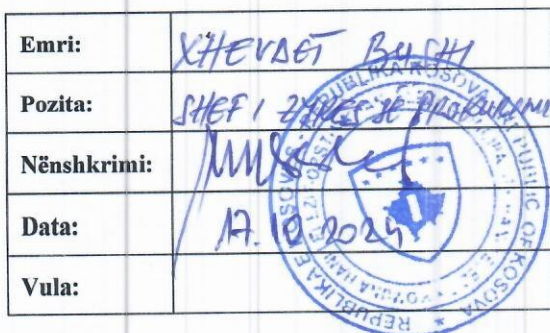 Emri: XHEVDET BUSHI
Pozita: SHEF I ZYRES SË PROKURIMIT
Nënshkrimi:
Data: 17.10.2024
Vula:
REPUBLIKA E KOSOVËS REPUBLIKA KOSOVA REPUBLIC OF KOSOVA